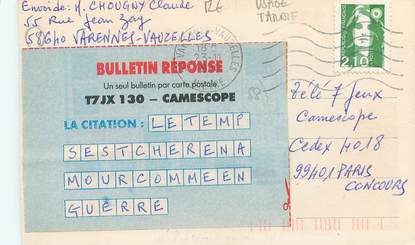 Envoide: M. CHOUGNY Claude
55 Rue Jean Zay
(58640 VARENNES-VAUZELLES
RE
USAGE
TARDIF
18
23-11
BULLETIN RÉPONSE
Un seul bulletin par carte postale
T7JX 130 – CAMESCOPE
LA CITATION : LETEMP
SESTCHERENA
MOURCOMMEEN
GUERRE
2,10
Télé 7 Jeux
Camescope
Cedex 4018
99401 PARIS
CONCOURS